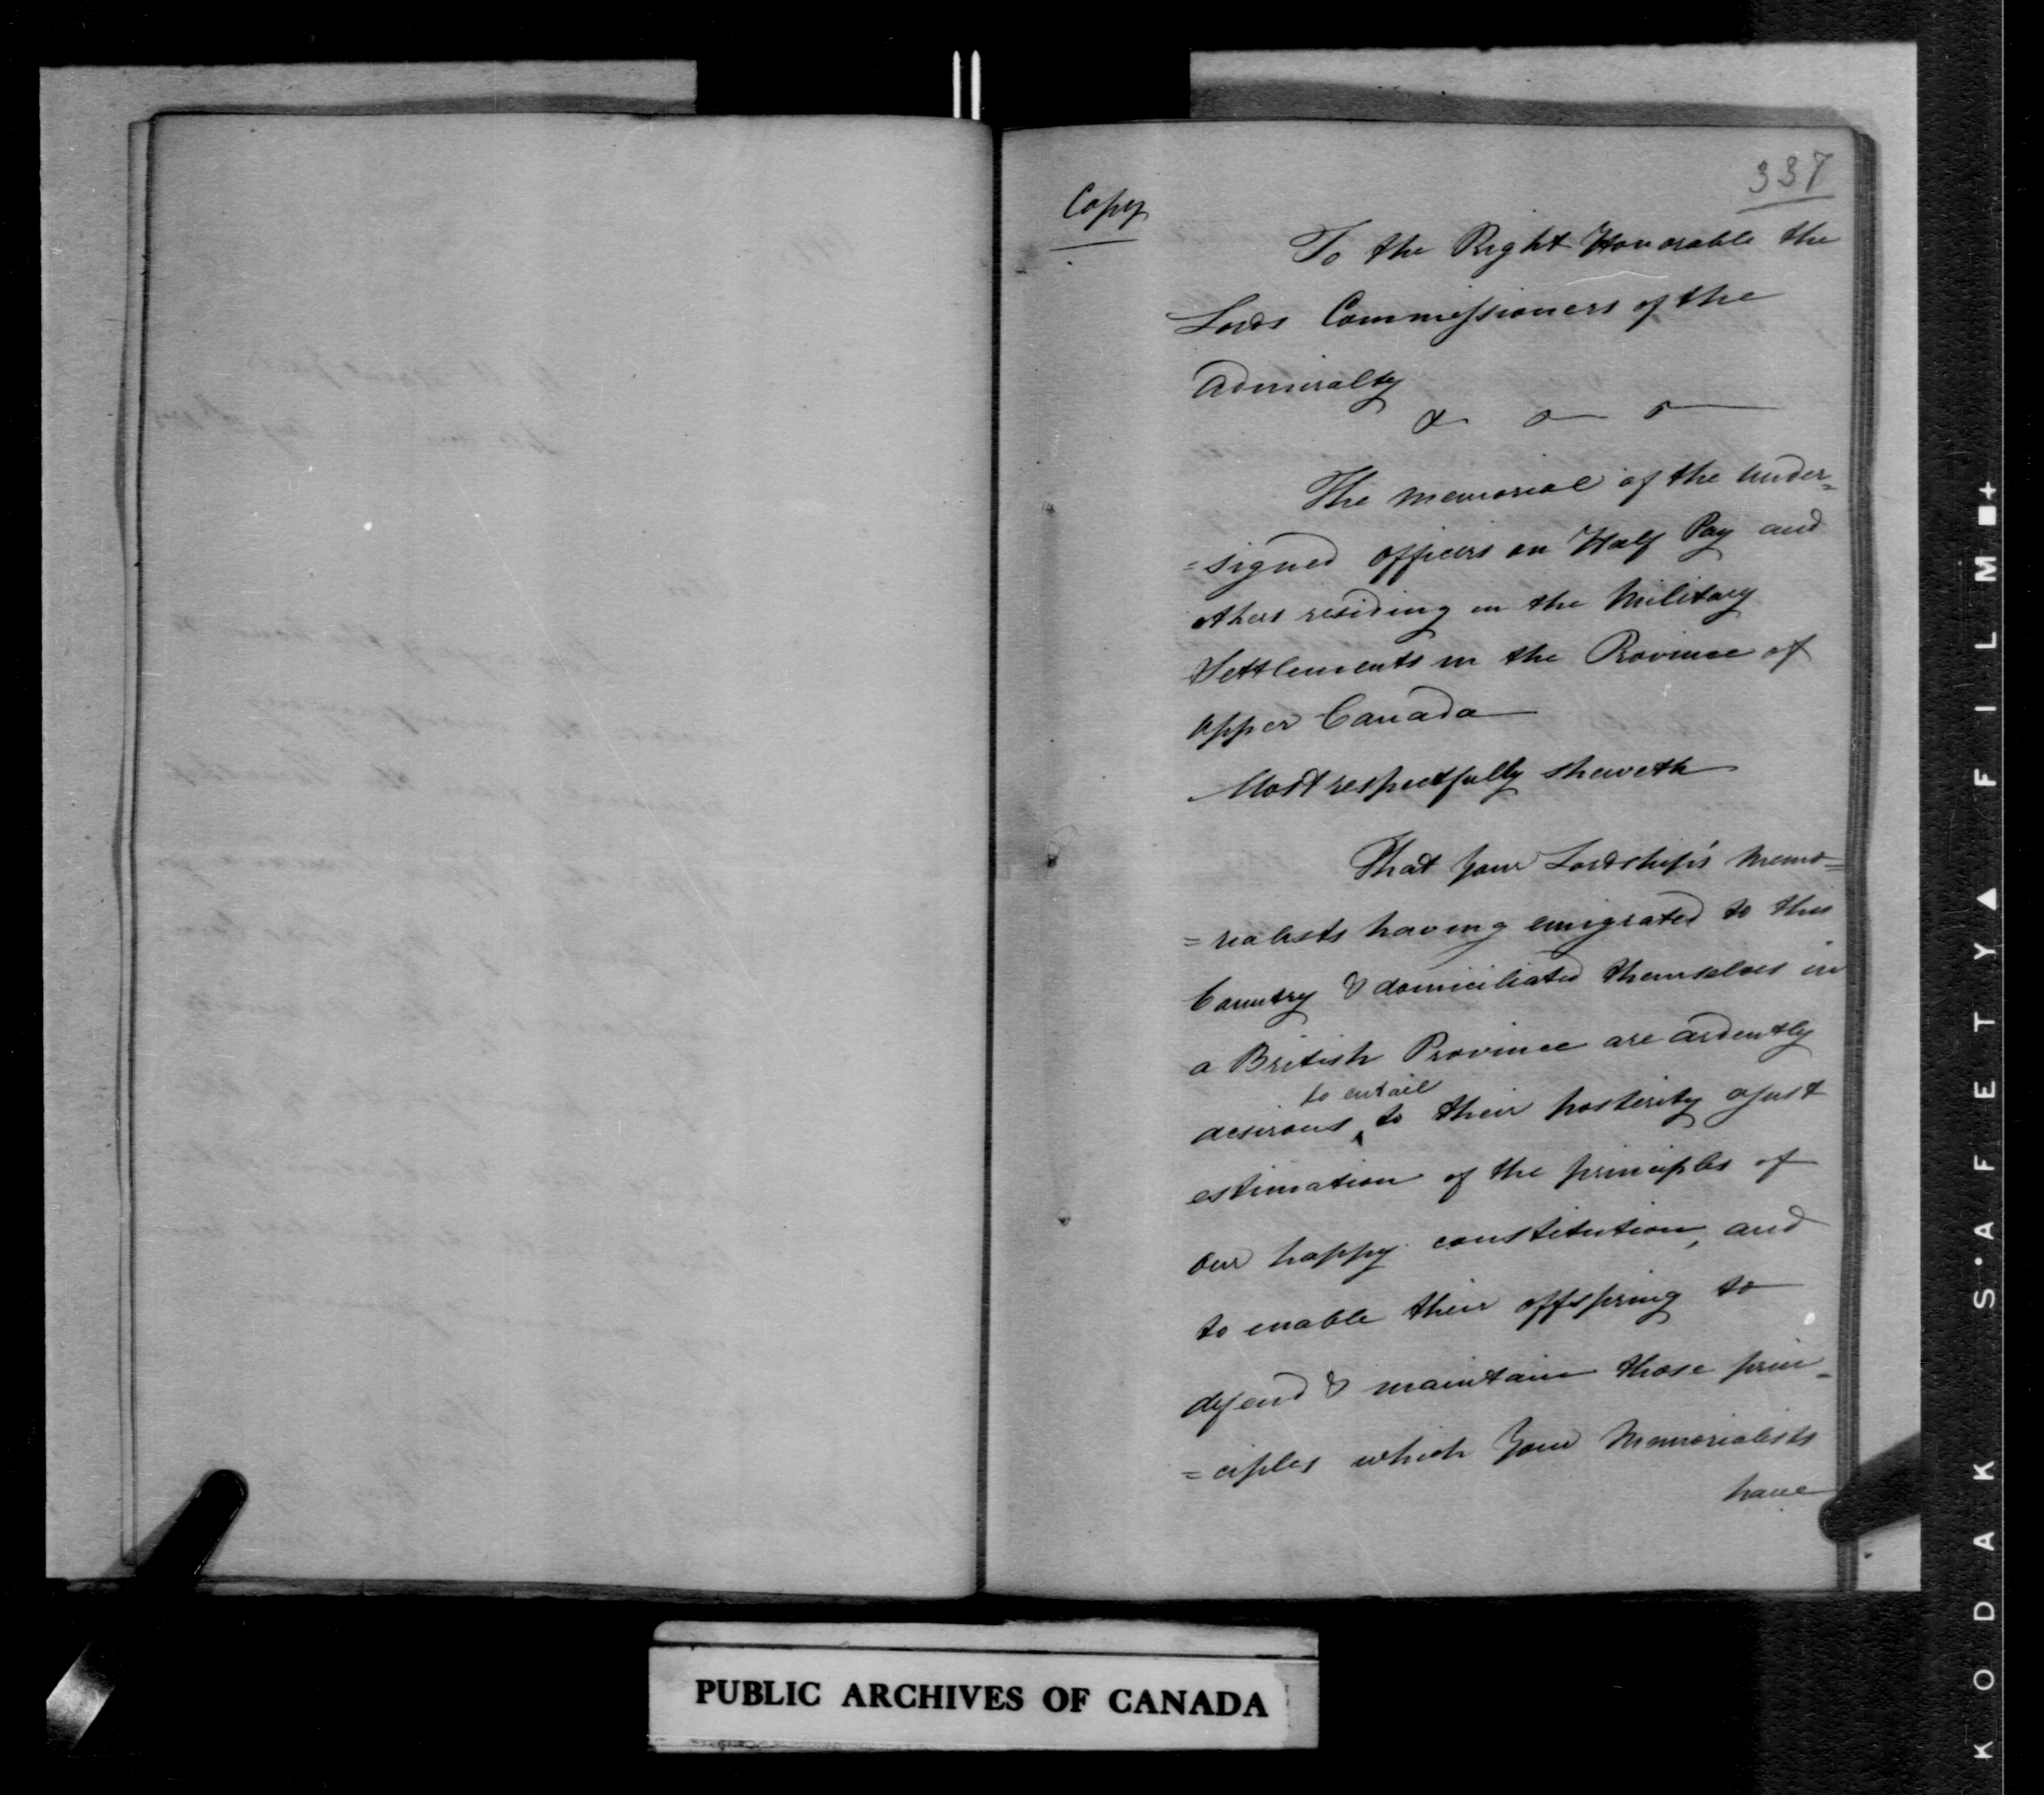 337
Copy
To the Right Honorable the
Lords Commissioners of the
Admiralty
The memorial of the under=
=signed officers on Half Pay and
others residing in the Military
Settlements in the Province of
Upper Canada
Most respectfully sheweth
That your Lordship's memo=
=rialists having emigrated to this
Country & domiciliated themselves in
a British Province are ardently
to entail
desirous to their posterity a just
estimation of the principles of
our happy constitution, and
to enable their offspring to
defend & maintain those prin=
=ciples which your Memorialists
have
PUBLIC ARCHIVES OF CANADA
KODAK S·AFETY▲FILM■+